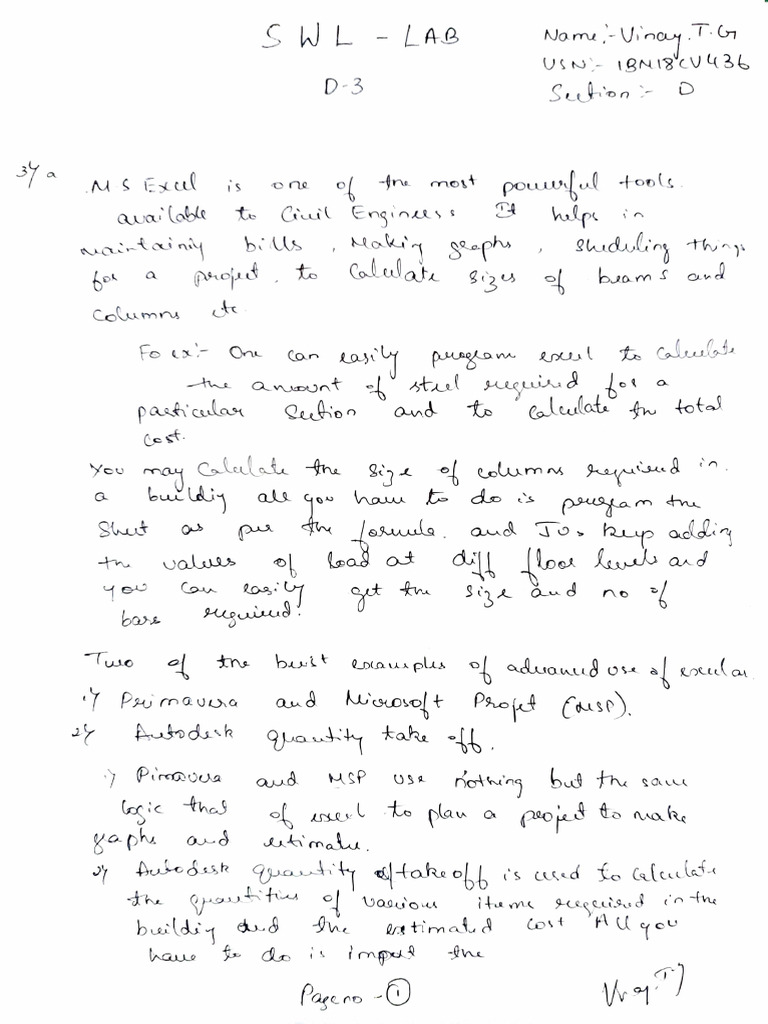 SWL - LAB
Name:- Vinay.T.G
USN:- 1BN18CV436
D-3
Section:- D
3) a MS Excel is one of the most powerful tools.
available to Civil Engineers It helps in
maintaining bills, Making graphs, Sheduling things
for a project, to Calculate sizes of beams and
Columns etc
Fo ex:- One can easily program excel to calculate
the amount of steel required for a
particular Section and to calculate the total
cost.
You may Calculate the size of columns required in
a building all you have to do is program the
Sheet as per the formule. and keep adding
the values of load at diff floor levels and
you can easily get the size and no of
bars required.
Two of the best examples of advanced use of excel are
1) Primavera and Microsoft Projet (MSP).
2) Autodesk quantity take off.
1) Pimavera and MSP use nothing but the same
logic that of excel to plan a project to make
graphs and estimates.
2) Autodesk quantity takeoff is used to calculate
the quantities of various items required in the
building and the estimated cost All you
have to do is import the
Page no - 1
Vinay.T.G